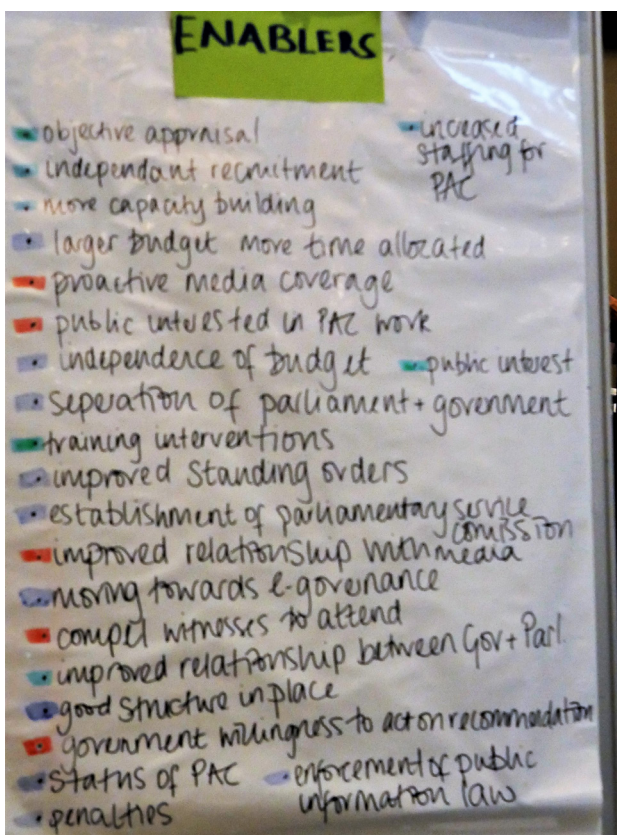 ENABLERS
objective appraisal
increased
staffing for
PAC
independant recruitment
more capacity building
larger budget more time allocated
proactive media coverage
public interested in PAC work
independence of budget
public interest
seperation of parliament + government
training interventions
improved standing orders
establishment of parliamentary service
comission
improved relationship with media
moving towards e-governance
compel witnesses to attend
improved relationship between Gov + Parl.
good structure in place
government willingness to act on recommendation
status of PAC
enforcement of public
information law
penalties